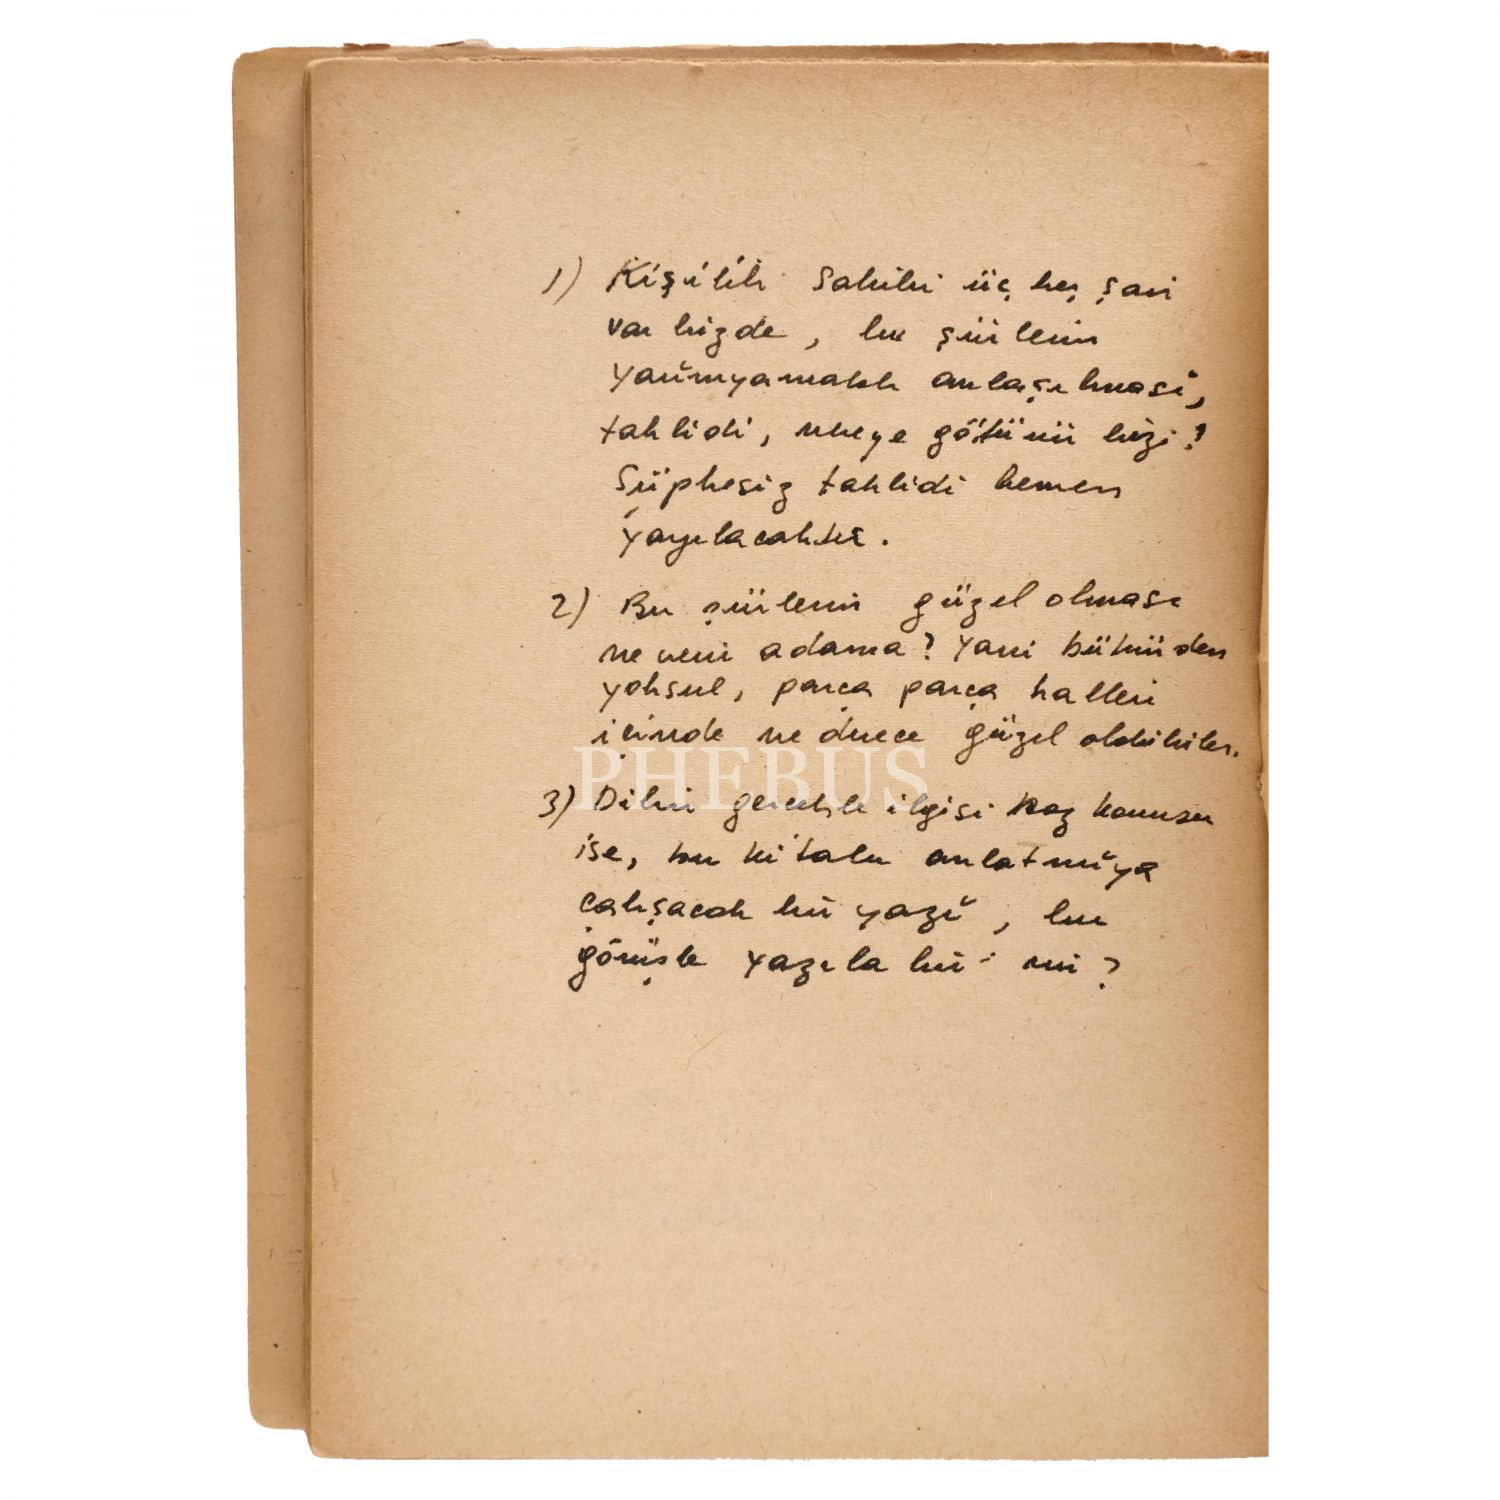 1) Kişilik sahibi üç beş şair
var bizde, bu şiirlerin
yarımyamalak anlaşılması,
taklidi, nereye götürür bizi?
Şüphesiz taklidi hemen
yayılacaktır.
2) Bu şiirlerin güzel olması
ne verir adama? Yani bütünden
yoksul, parça parça halleri
içinde ne derece güzel olabilirler.
3) Dilin gerçekle ilgisi söz konusu
ise, bu kitabı anlatmıya
çalışacak bir yazı, bu
görüşle yazıla bilir mi?
PHEBUS